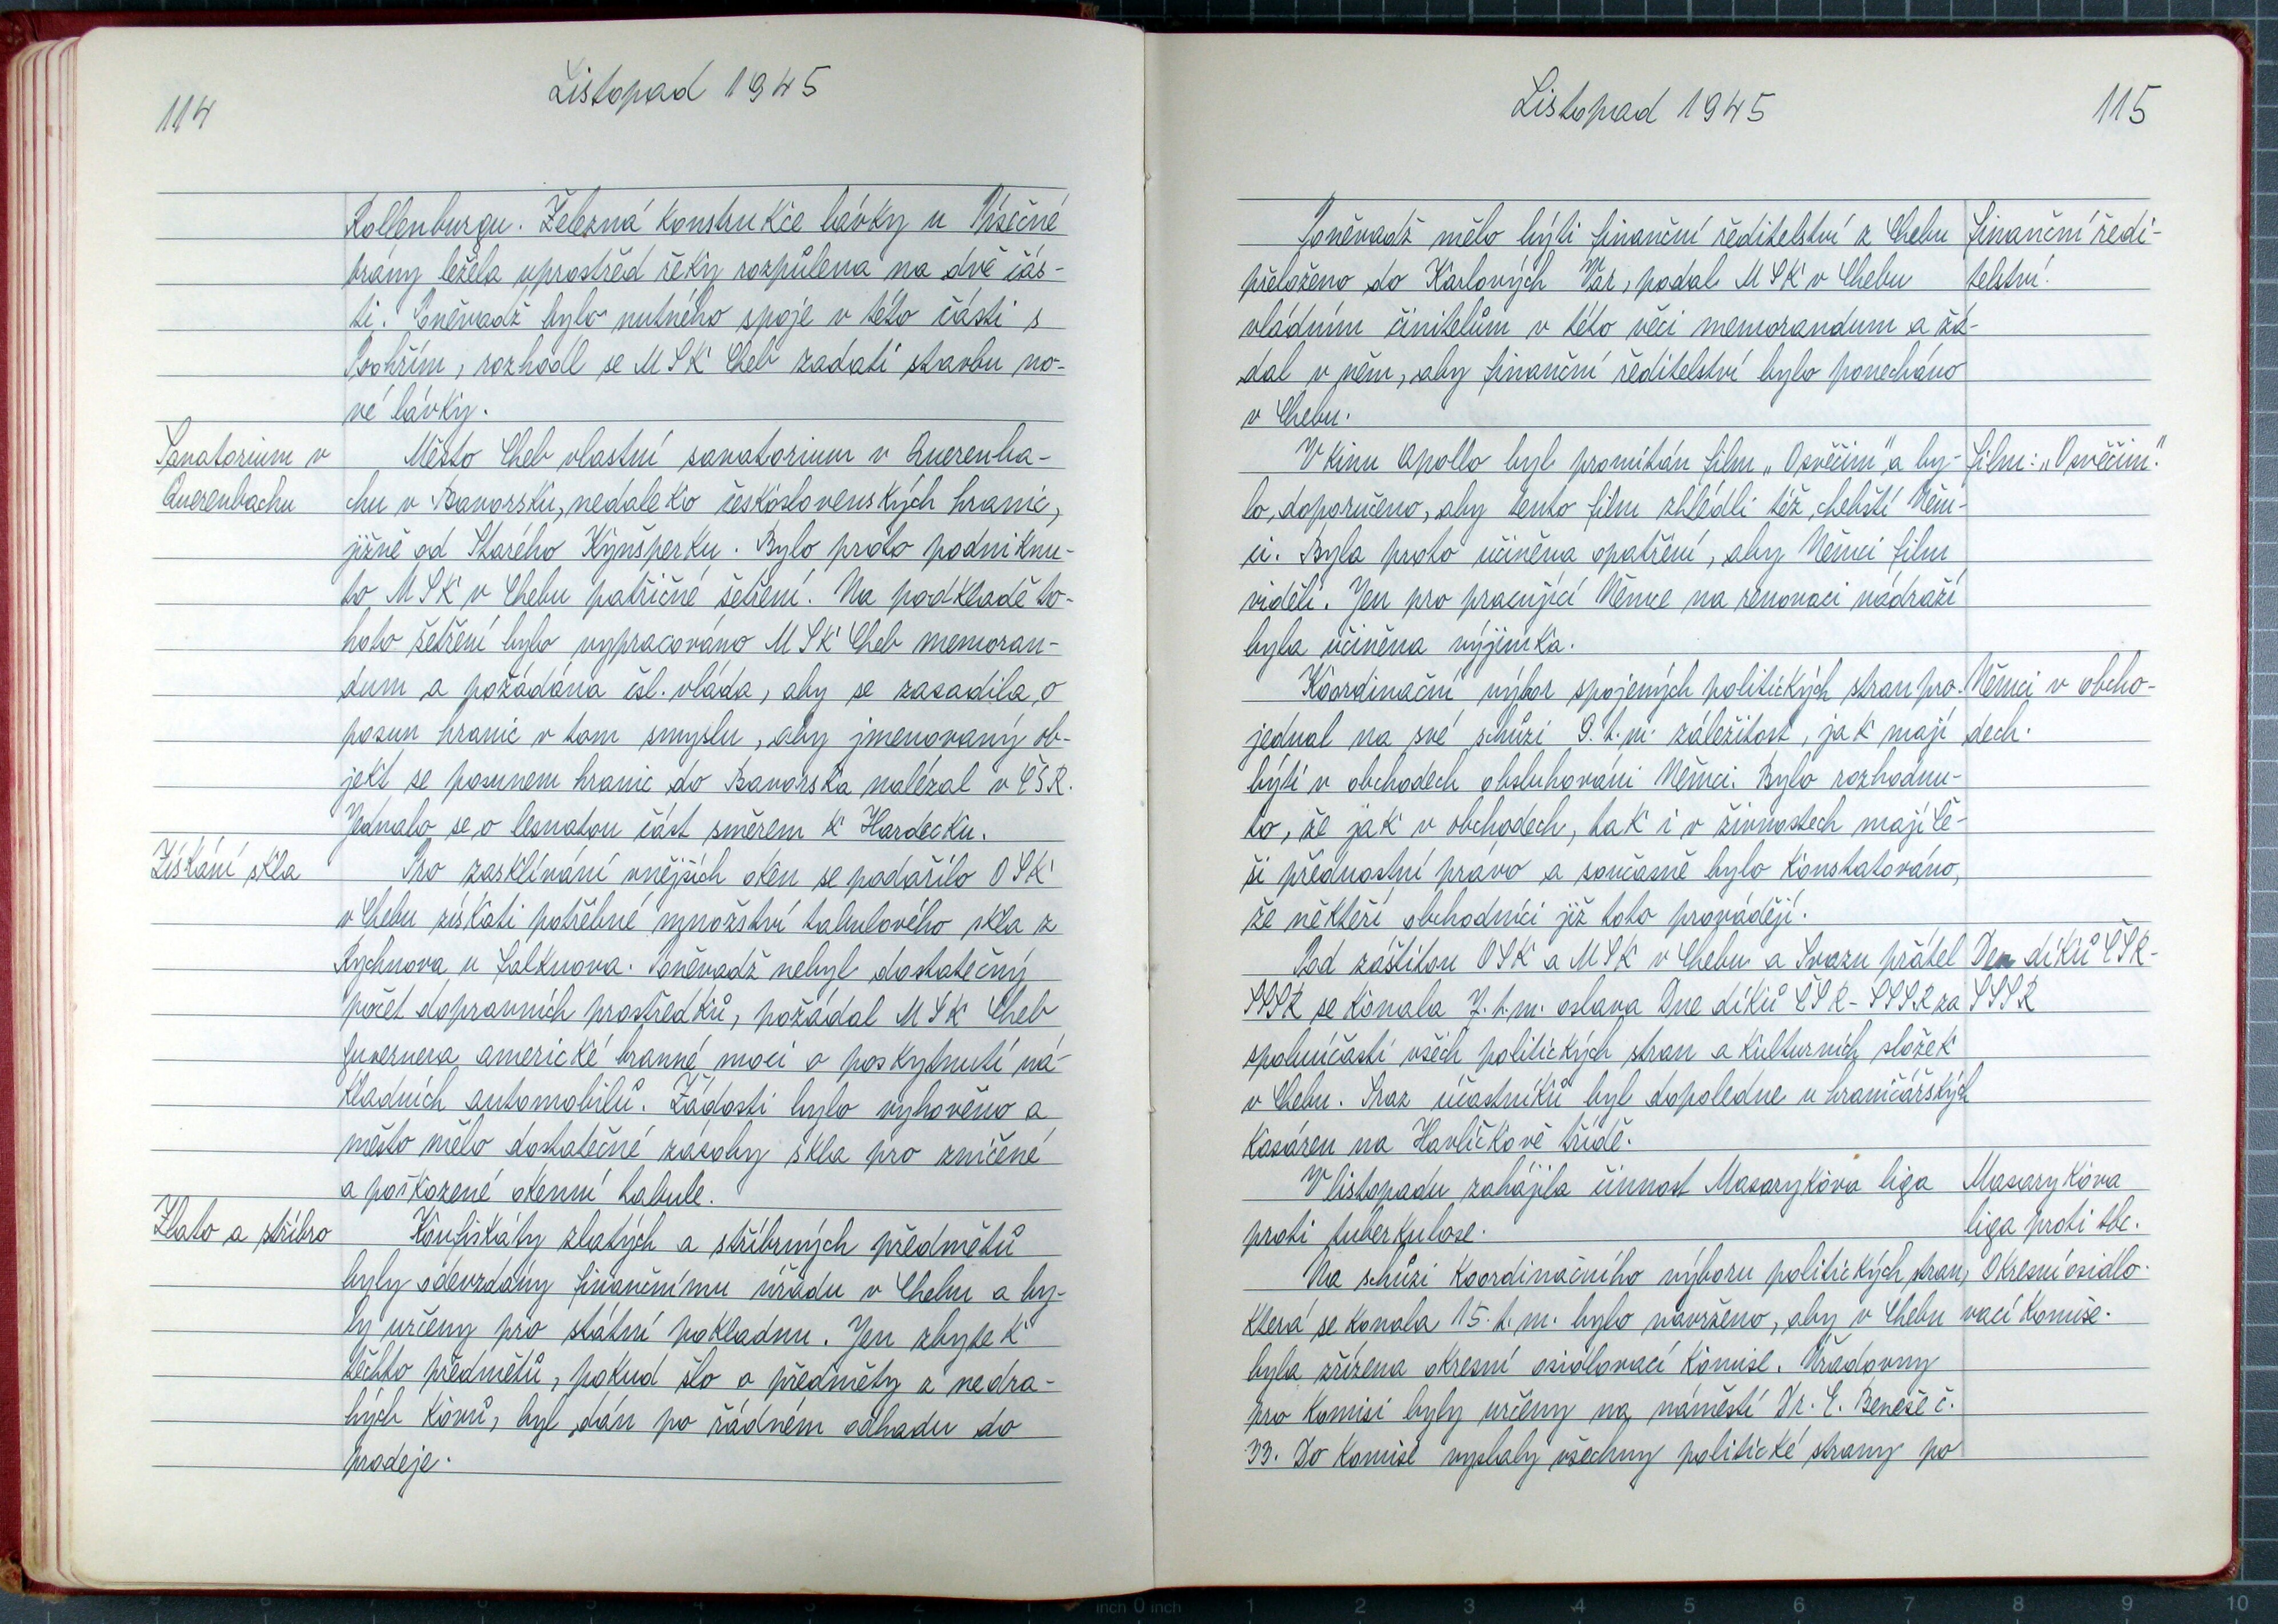 114
Listopad 1945
Kollenburgu. Železná konstrukce lávky u Písečné
brány ležela uprostřed řeky rozpůlena na dvě čás-
ti. Poněvadž bylo nutného spoje v této části s
Poohřím, rozhodl se MSK Cheb zadati stavbu no-
vé lávky.
Sanatorium v
Querenbachu
Město Cheb vlastní sanatorium v Querenba-
chu v Bavorsku, nedaleko československých hranic,
jižně od Starého Kynšperku. Bylo proto podniknu-
to MSK v Chebu patřičné šetření. Na podkladě to-
hoto šetření bylo vypracováno MSK Cheb memoran-
dum a požádána čsl. vláda, aby se zasadila o
posun hranic v tom smyslu, aby jmenovaný ob-
jekt se posunem hranic do Bavorska nalézal v ČSR.
Jednalo se o lesnatou část směrem k Hardecku.
Získání skla
Pro zasklívání vnějších oken se podařilo OSK
v Chebu získati potřebné množství tabulového skla z
Rychnova u Falknova. Poněvadž nebyl dostatečný
počet dopravních prostředků, požádal MSK Cheb
guvernera americké branné moci o poskytnutí ná-
kladních automobilů. Žádosti bylo vyhověno a
město mělo dostatečné zásoby skla pro zničené
a poškozené okenní tabule.
Zlato a stříbro
Konfiskáty zlatých a stříbrných předmětů
byly odevzdány finančnímu úřadu v Chebu a by-
ly určeny pro státní pokladnu. Jen zbytek
těchto předmětů, pokud šlo o předměty z nedra-
hých kovů, byl dán po řádném odhadu do
prodeje.
Listopad 1945
115
Poněvadž mělo býti finanční ředitelství z Chebu
přeloženo do Karlových Var, podal MSK v Chebu
vládním činitelům v této věci memorandum a žá-
dal v něm, aby finanční ředitelství bylo ponecháno
v Chebu.
Finanční ředi-
telství.
V kinu Apollo byl promítán film „Osvěčim" a by-
lo doporučeno, aby tento film zhlédli též chebští Něm-
ci. Byla proto učiněna opatření, aby Němci film
viděli. Jen pro pracující Němce na renovaci nádraží
byla učiněna výjimka.
Film: „Osvěčim."
Koordinační výbor spojených politických stran pro-
jednal na své schůzi 9. t. m. záležitost, jak mají
býti v obchodech obsluhováni Němci. Bylo rozhodnu-
to, že jak v obchodech, tak i v živnostech mají Če-
ši přednostní právo a současně bylo konstatováno,
že někteří obchodníci již toto provádějí.
Němci v obcho-
dech.
Pod záštitou OSK a MSK v Chebu a Svazu přátel
SSSR se konala 7. t. m. oslava Dne díků ČSR-SSSR za
spoluúčasti všech politických stran a kulturních složek
v Chebu. Sraz účastníků byl dopoledne u hraničářských
kasáren na Havlíčkově třídě.
Den díků ČSR-
SSSR
V listopadu zahájila činnost Masarykova liga
proti tuberkulose.
Masarykova
liga proti tbc.
Na schůzi koordinačního výboru politických stran,
která se konala 15. t. m. bylo navrženo, aby v Chebu
byla zřízena okresní osidlovací komise. Úřadovny
pro komisi byly určeny na náměstí Dr. E. Beneše č.
33. Do komise vyslaly všechny politické strany po
Okresní osidlo-
vací komise.